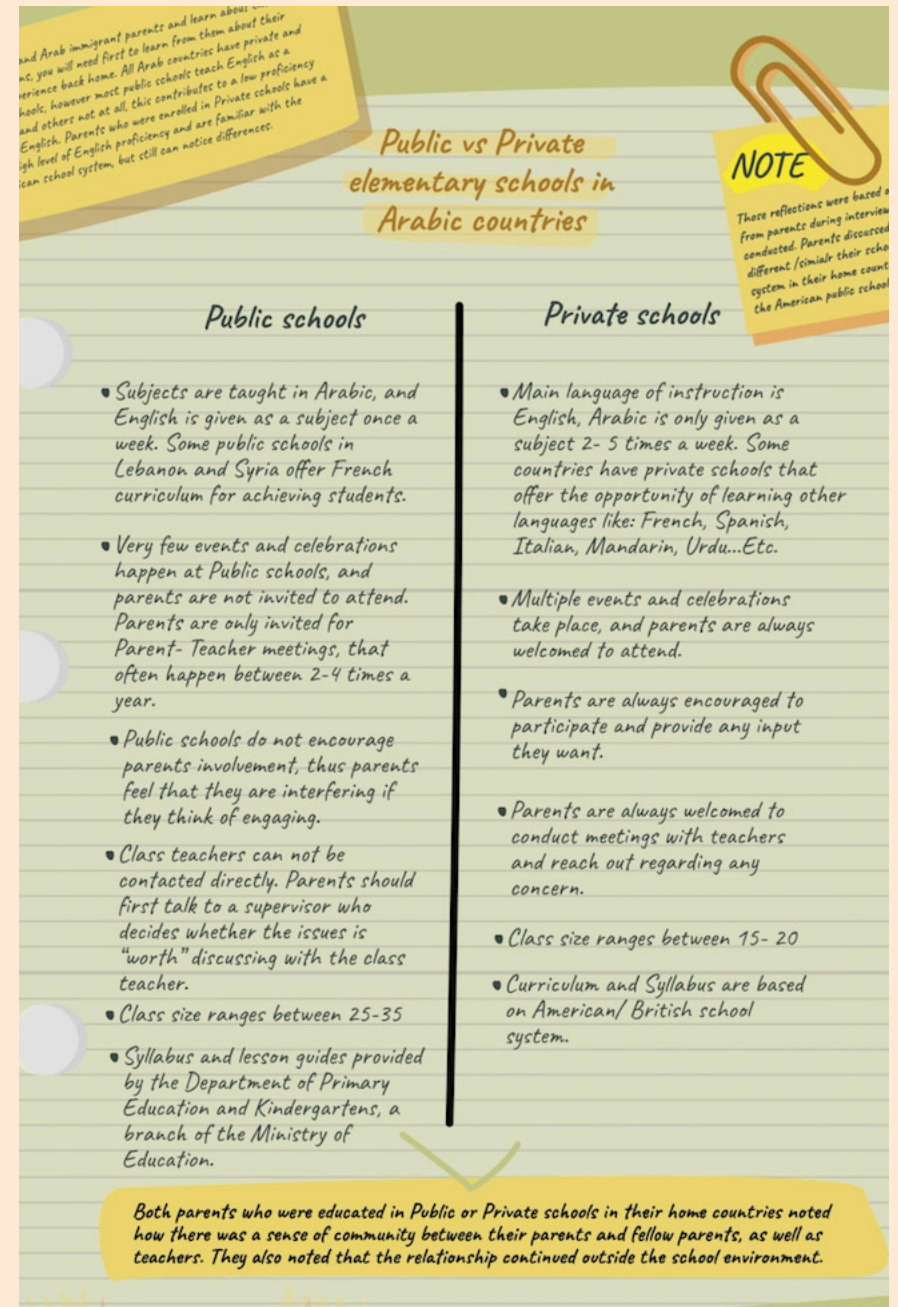 and Arab immigrant parents and learn about
you will need first to learn from them about their
back home. All Arab countries have private and
however most public schools teach English as a
and others not at all, this contributes to a low proficiency
English. Parents who were enrolled in Private schools have a
level of English proficiency and are familiar with the
school system, but still can notice differences.
Public vs Private
elementary schools in
Arabic countries
NOTE
Those reflections were based
from parents during
conducted. Parents discussed
different /simialr their
system in their home
the American public
Public schools
• Subjects are taught in Arabic, and
English is given as a subject once a
week. Some public schools in
Lebanon and Syria offer French
curriculum for achieving students.
• Very few events and celebrations
happen at Public schools, and
parents are not invited to attend.
Parents are only invited for
Parent- Teacher meetings, that
often happen between 2-4 times a
year.
• Public schools do not encourage
parents involvement, thus parents
feel that they are interfering if
they think of engaging.
• Class teachers can not be
contacted directly. Parents should
first talk to a supervisor who
decides whether the issues is
"worth" discussing with the class
teacher.
• Class size ranges between 25-35
• Syllabus and lesson guides provided
by the Department of Primary
Education and Kindergartens, a
branch of the Ministry of
Education.
Private schools
• Main language of instruction is
English, Arabic is only given as a
subject 2- 5 times a week. Some
countries have private schools that
offer the opportunity of learning other
languages like: French, Spanish,
Italian, Mandarin, Urdu...Etc.
• Multiple events and celebrations
take place, and parents are always
welcomed to attend.
• Parents are always encouraged to
participate and provide any input
they want.
• Parents are always welcomed to
conduct meetings with teachers
and reach out regarding any
concern.
• Class size ranges between 15- 20
• Curriculum and Syllabus are based
on American/ British school
system.
Both parents who were educated in Public or Private schools in their home countries noted
how there was a sense of community between their parents and fellow parents, as well as
teachers. They also noted that the relationship continued outside the school environment.